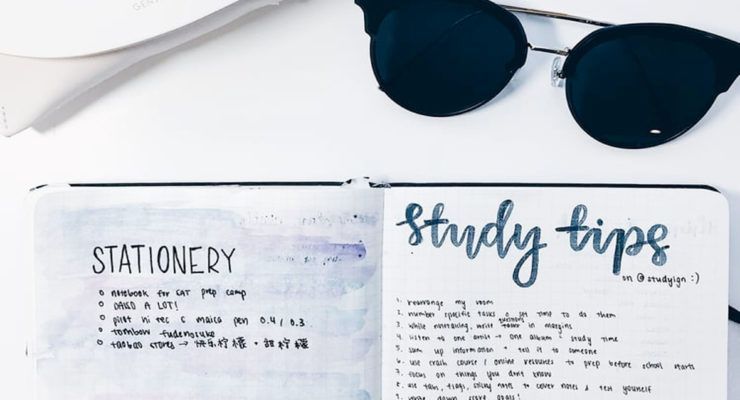 GENT
STATIONERY
notebook for SAT prep camp
DAISO A LOT!
pilot hi tec c maica pen 0.4 / 0.3
tombow fudenosuke
taobao stores → 快乐柠檬 · 甜柠檬
study tips
on @studyign :)
1. rearrange my room
2. number specific tasks & set time to do them
3. while notetaking, write questions in margins
4. listen to one artist → one album = study time
5. sum up information & tell it to someone
6. use crash course / online resources to prep before school starts
7. focus on things you don't know
8. use tabs, flags, sticky notes to cover notes & test yourself
9. write down score goals!